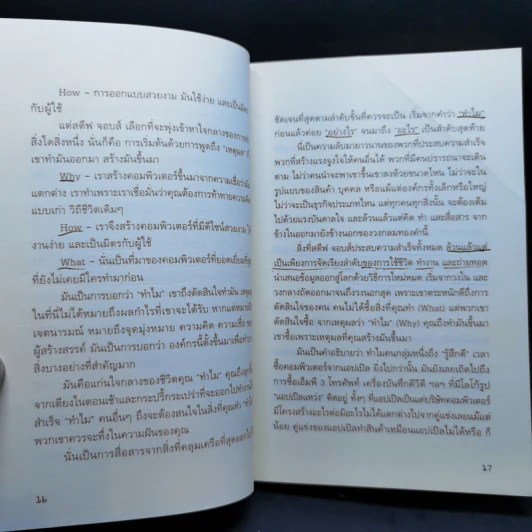 How – การออกแบบสวยงาม มันใช้ง่าย และเป็นมิตร
กับผู้ใช้
แต่สตีฟ จอบส์ เลือกที่จะพุ่งเข้าหาใจกลางของการ
สิ่งใดสิ่งหนึ่ง นั่นก็คือ การเริ่มต้นด้วยการพูดถึง “เหตุผล”
เขาทำมันออกมา สร้างมันขึ้นมา
Why – เราสร้างคอมพิวเตอร์ขึ้นมาจากความเชื่อว่า
แตกต่าง เราทำเพราะเราเชื่อมั่นว่าคุณต้องการท้าทายความคิด
แบบเก่า วิถีชีวิตเดิมๆ
How – เราจึงสร้างคอมพิวเตอร์ที่มีดีไซน์สวยงาม
งานง่าย และเป็นมิตรกับผู้ใช้
What – นั่นเป็นที่มาของคอมพิวเตอร์ที่ยอดเยี่ยม
ที่ยังไม่เคยมีใครทำมาก่อน
มันเป็นการบอกว่า “ทำไม” เขาถึงตัดสินใจทำมัน เหตุผล
ในที่นี่ไม่ได้หมายถึงผลกำไรที่เขาจะได้รับ หากแต่หมายถึง
เจตนารมณ์ หมายถึงจุดมุ่งหมาย ความคิด ความเชื่อ ของ
ผู้สร้างสรรค์ มันเป็นการบอกว่า องค์กรนี้ตั้งขึ้นมาเพื่อทำ
สิ่งบางอย่างที่สำคัญมาก
มันคือแก่นใจกลางของชีวิตคุณ “ทำไม” คุณถึงลุกขึ้น
จากเตียงในตอนเช้าและกระปรี้กระเปร่าที่จะออกไปทำงาน
สำเร็จ “ทำไม” คนอื่นๆ ถึงจะต้องสนใจในสิ่งที่คุณทำ
พวกเขาควรจะทึ่งในความฝันของคุณ
นั่นเป็นการสื่อสารจากสิ่งที่คลุมเครือที่สุดออกไป
16
ชัดเจนที่สุดตามลำดับชั้นที่ควรจะเป็น เริ่มจากคำว่า “ทำไม”
ก่อนแล้วค่อย “อย่างไร” จนมาถึง “อะไร” เป็นลำดับสุดท้าย
นี่เป็นความลับมายาวนานของพวกที่ประสบความสำเร็จ
พวกที่สร้างแรงจูงใจให้คนอื่นได้ พวกที่มีคนปรารถนาจะเดิน
ตาม ไม่ว่าคนนำจะพาเขาขึ้นเขาลงห้วยขนาดไหน ไม่ว่าจะใน
รูปแบบของสินค้า บุคคล หรือแม้แต่องค์กรทั้งเล็กหรือใหญ่
ไม่ว่าจะเป็นธุรกิจประเภทไหน แต่ทุกคนทุกสิ่งนั้น จะต้องเต็ม
ไปด้วยแรงบันดาลใจ และล้วนแล้วแต่คิด ทำ และสื่อสาร จาก
ข้างในออกมายังข้างนอกของวงกลมทองคำนี้
สิ่งที่สตีฟ จอบส์ประสบความสำเร็จทั้งหมด ล้วนแล้วแต่
เป็นเพียงการจัดเรียงลำดับของการใช้ชีวิต ทำงาน และถ่ายทอด
นำเสนอข้อมูลออกสู่โลกด้วยวิธีการใหม่หมด เริ่มจากวงใน และ
วงกลางถัดออกมาจนถึงวงนอกสุด เพราะเขาตระหนักดีถึงการ
ตัดสินใจของคน คนไม่ได้ซื้อสิ่งที่คุณทำ (What) แต่พวกเขา
ตัดสินใจซื้อ จากเหตุผลว่า “ทำไม” (Why) คุณถึงทำมันขึ้นมา
เขาซื้อเพราะเหตุผลที่คุณสร้างมันขึ้นมา
มันเป็นคำอธิบายว่า ทำไมคนกลุ่มหนึ่งถึง “รู้สึกดี” เวลา
ซื้อคอมพิวเตอร์จากแอปเปิล ยิ่งไปกว่านั้น มันยังเลยเถิดไปถึง
การซื้อเอ็มพี 3 โทรศัพท์ เครื่องบันทึกดีวีดี ฯลฯ ที่มีโลโก้รูป
“แอปเปิลแหว่ง” ติดอยู่ ทั้งๆ ที่แอปเปิลเป็นแค่บริษัทคอมพิวเตอร์
มีโครงสร้างอะไรต่อมิอะไรไม่ได้แตกต่างไปจากคู่แข่งเลยแม้แต่
น้อย คู่แข่งของแอปเปิลทำสินค้าเหมือนแอปเปิลไม่ได้หรือ ก็
17